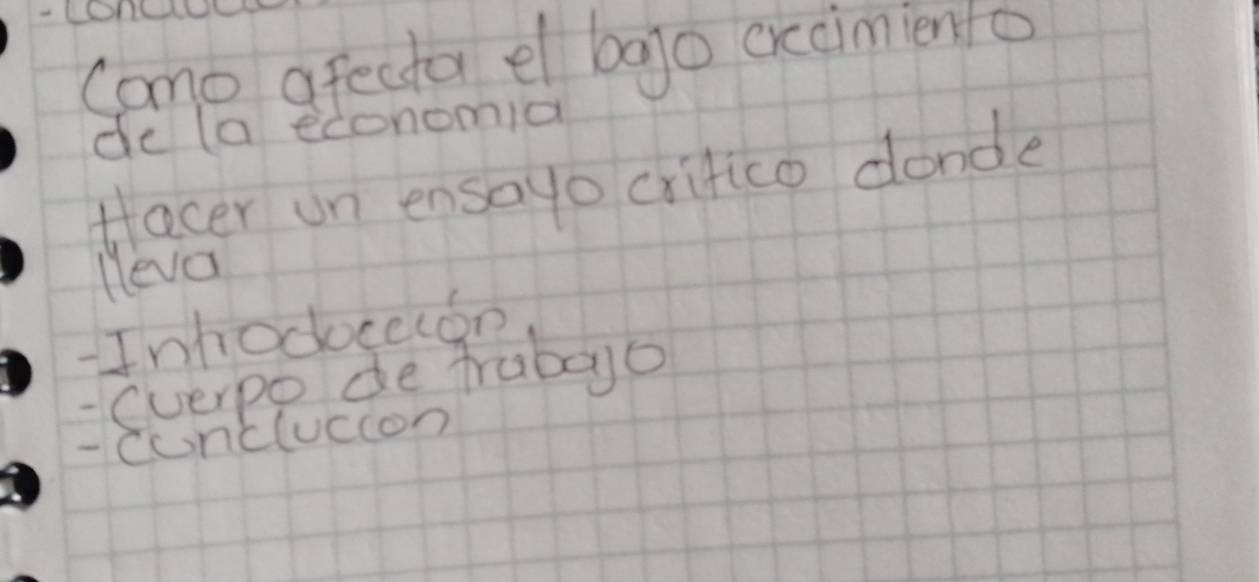 Como afecta el bajo crecimiento
de la economia
Hacer un ensayo critico donde
lleva
-Introducción.
-Cuerpo de trabajo
-conclucion